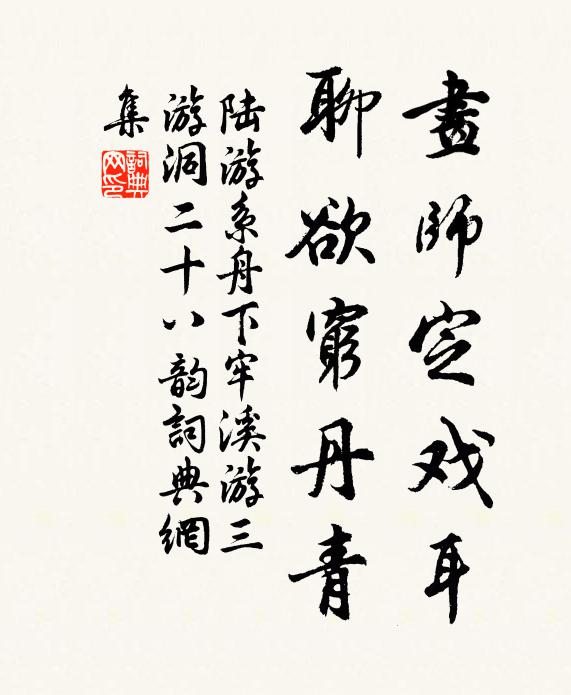 畫師定戏耳
聊欲窮丹青
陆游系舟下牢溪游三
游洞二十八韵詞典網
集
詞典
网印